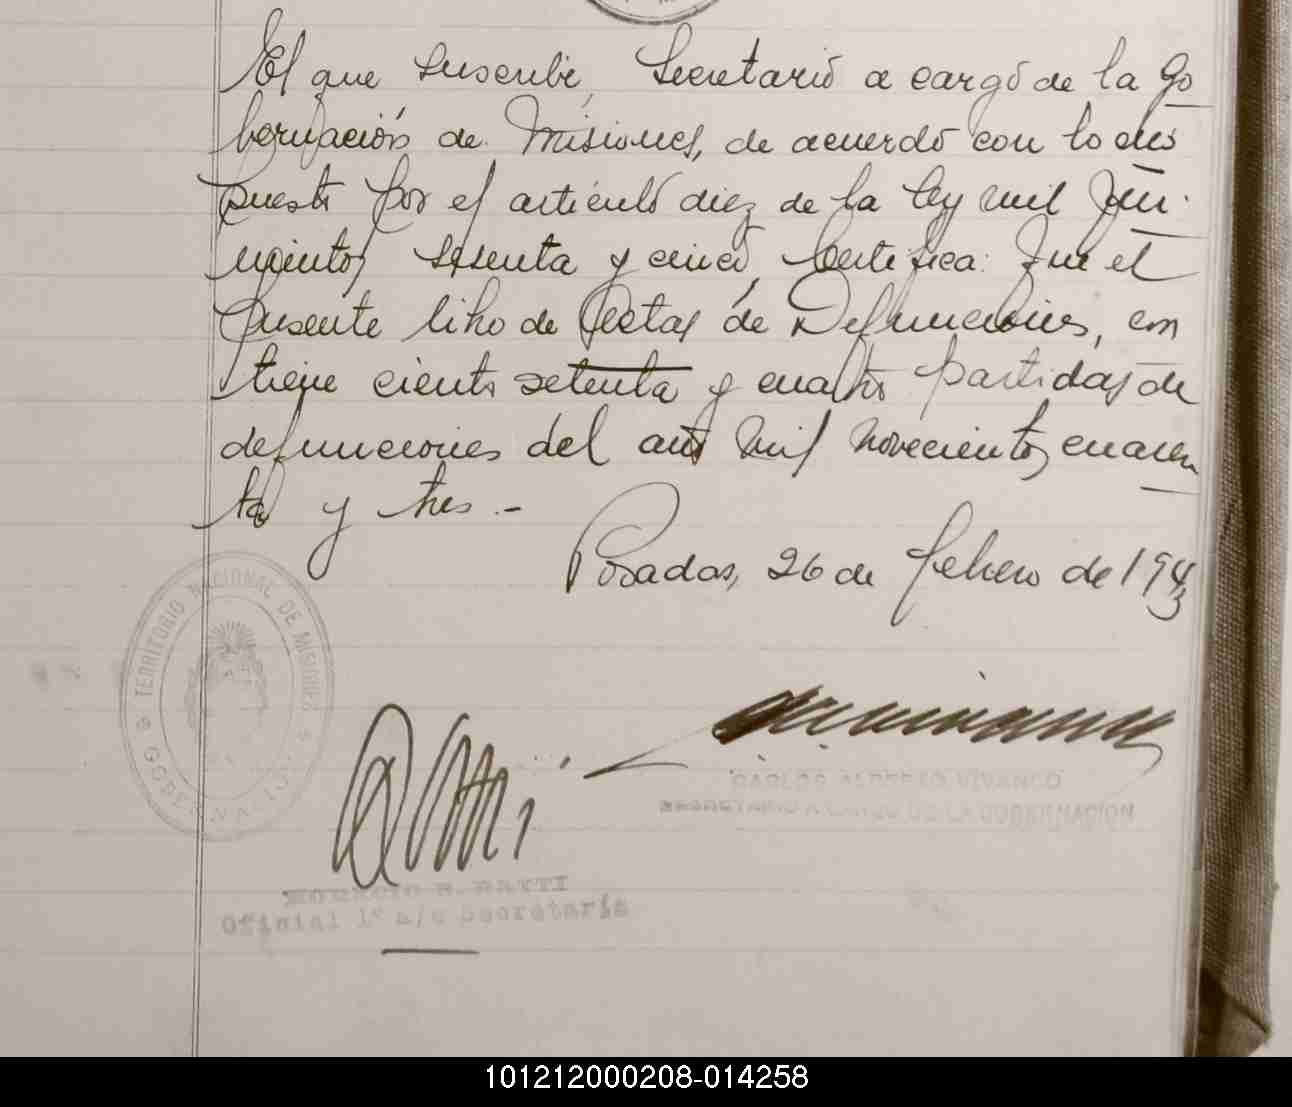 El que suscribe, Secretario a cargo de la Go
bernación de Misiones, de acuerdo con lo dis
puesto por el artículo diez de la ley mil quin
nientos sesenta y cinco, Certifica: Que el
presente libro de Actas de Defunciones, con
tiene ciento setenta y cuatro partidas de
defunciones del año mil novecientos cuaren
ta y tres.-
Posadas, 26 de febrero de 1943
TERRITORIO NACIONAL DE MISIONES
GOBERNACION
CARLOS ALFREDO VIVANCO
SECRETARIO A CARGO DE LA GOBERNACION
HORACIO R. RATTI
Oficial 1º a/c Secretaría
101212000208-014258